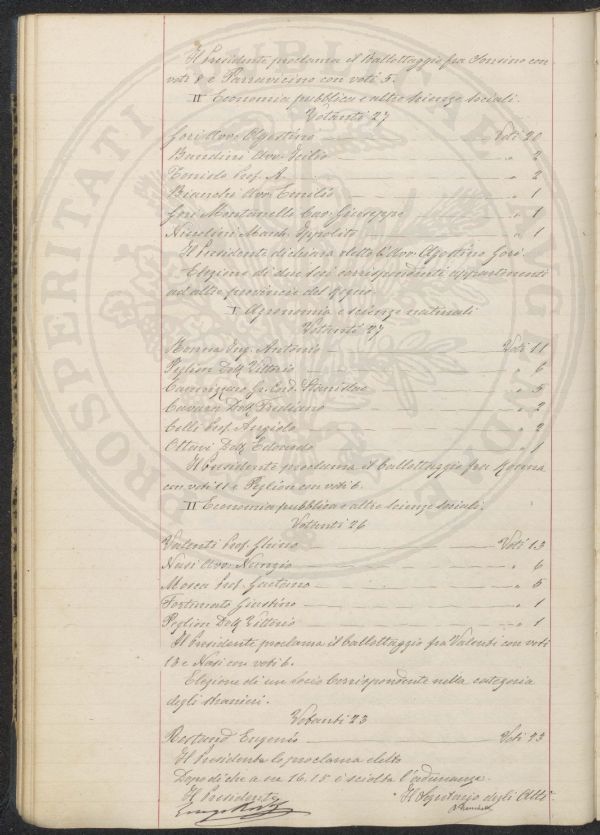 Il Presidente proclama il Ballottaggio fra con
voti 8 e Parravicino con voti 5.
II Economia pubblica e altre scienze sociali.
Votanti 27
Gori Avv. Agostino Voti 20
Bandini Avv. Icilio " 2
Prof. A. " 2
Bianchi Avv. Emilio " 1
Gori Montanelli Cav. Giuseppe " 1
March. Ippolito " 1
Il Presidente dichiara eletto l'Avv. Agostino Gori.
Elezione di due Soci corrispondenti appartenenti
ad altre provincie del Regno.
I Agronomia e scienze naturali
Votanti 27
Ing. Antonio Voti 11
Peglion Dott. Vittorio " 6
Cannizzaro Gr. Cord. Stanislao " 5
Cavara Dott. Fridiano " 2
Celli Prof. Angiolo " 2
Ottavi Dott. Edoardo " 1
Il Presidente proclama il ballottaggio fra
con voti 11 e Peglion con voti 6.
II Economia pubblica e altre scienze sociali.
Votanti 26
Valenti Prof. Ghino Voti 13
Nasi Avv. Nunzio " 6
Mosca Prof. Gaetano " 5
Fortunato Giustino " 1
Peglion Dott. Vittorio " 1
Il Presidente proclama il ballottaggio fra Valenti con voti
13 e Nasi con voti 6.
Elezione di un Socio Corrispondente nella categoria
degli stranieri.
Votanti 23
Rostand Eugenio Voti 23
Il Presidente lo proclama eletto
Dopo di che a ore 16.15 è sciolta l'adunanza.
Il Presidente Il Segretario degli Atti
PROSPERITATI PUBLICAE AUGENDAE